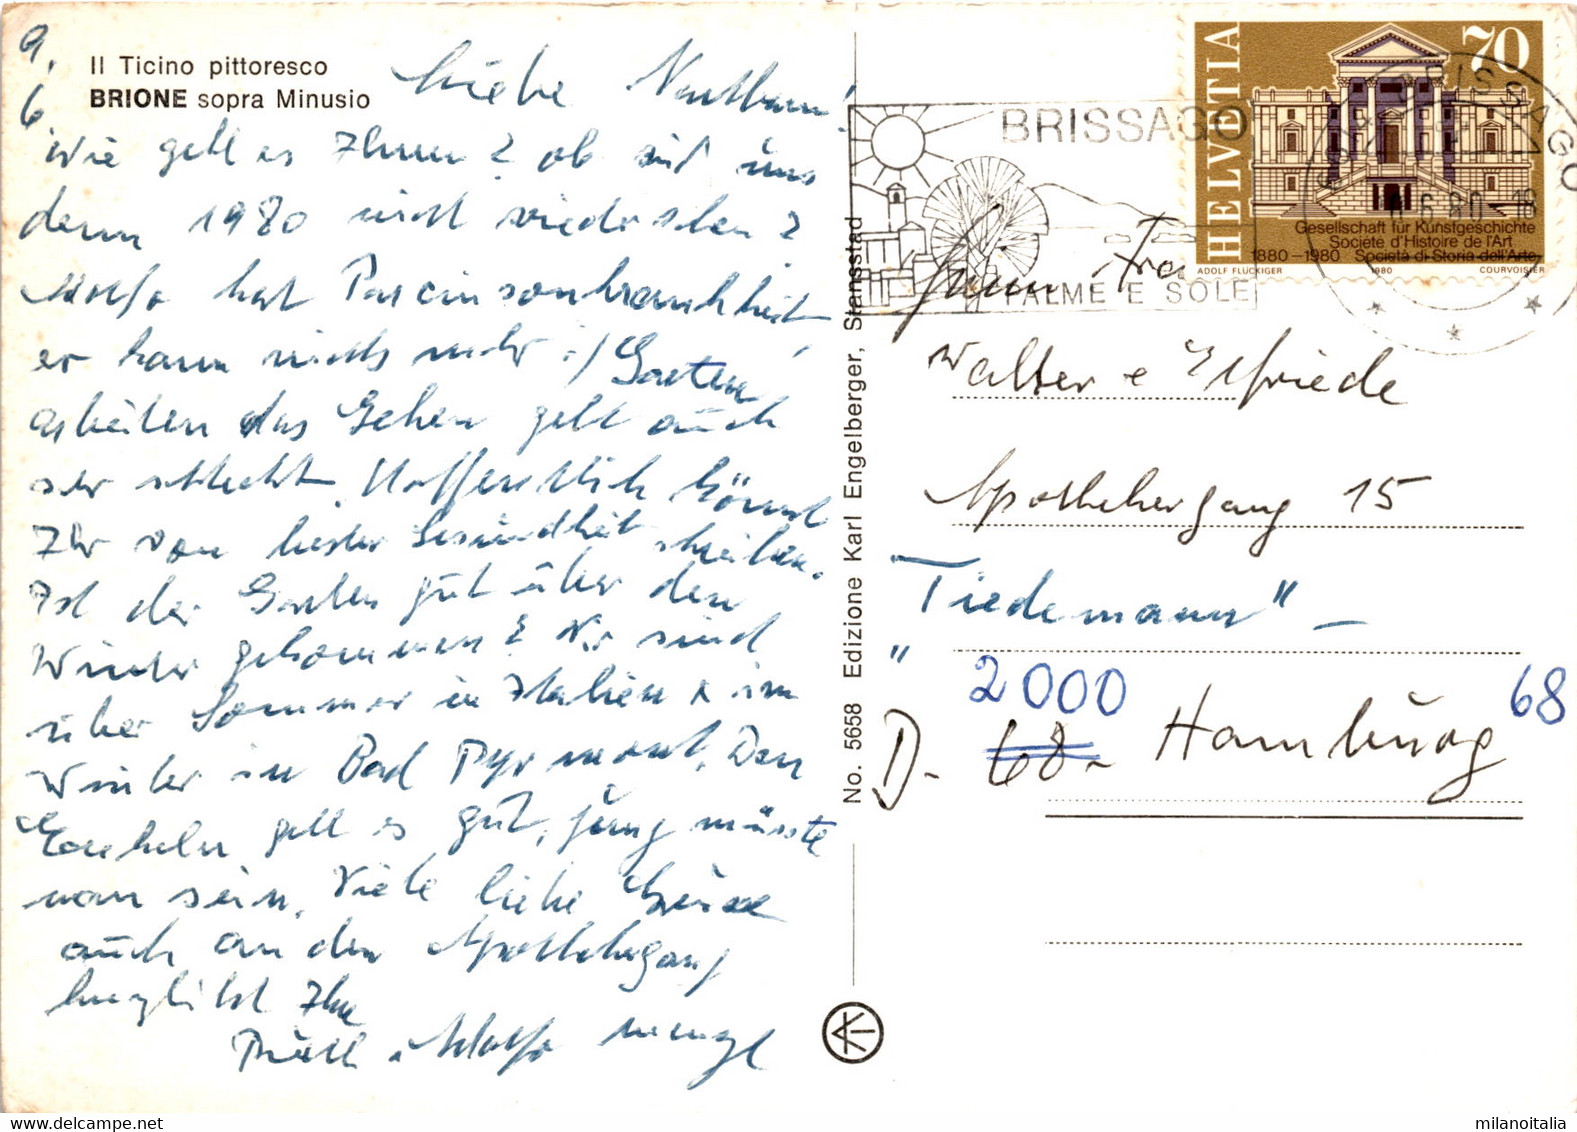 9.
6.
Il Ticino pittoresco
BRIONE sopra Minusio
Liebe Nachbarn!
Wie geht es Ihnen? ob wir uns
denn 1980 nicht wiedersehen?
hat Parcinsonkrankheit,
er kann nichts mehr i/ Garten
arbeiten das Gehen geht auch
ser schlecht. Hoffentlich könnt
Ihr von bester Gesundheit schreiben.
Ist der Garten gut über den
Winter gekommen? Wir sind
über Sommer in Italien & im
Winter in Bad Pyrmont. Den
Enkeln geht es gut, jung müsste
man sein. Viele liebe Grüsse
auch an den Apothekergang
herzlichst Ihre
No. 5658 Edizione Karl Engelberger, Stansstad
BRISSAGO
PALME E SOLE
BRISSAGO
6.80-18
HELVETIA
70
Gesellschaft für Kunstgeschichte
Société d'Histoire de l'Art
1880–1980 Società di Storia dell'Arte
ADOLF FLÜCKIGER 1980 COURVOISIER
Walter e Elfriede
Apothekergang 15
"Tiedemann" –
2000
D- 68- Hamburg 68
milanoitalia